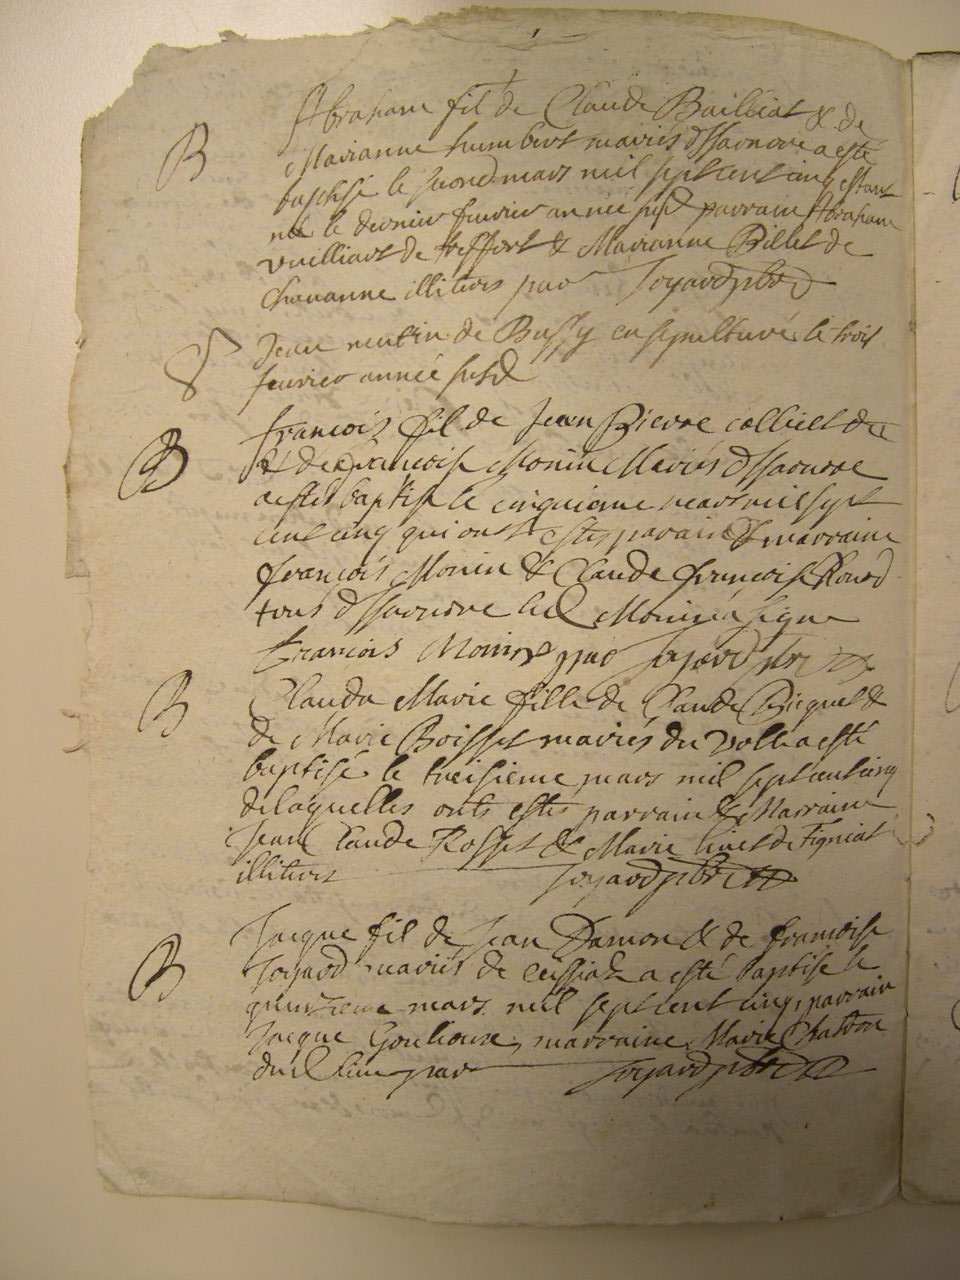 B
Abraham fil de Claude Bailliat & de
Marianne humbert mariés dssaourre a esté
baptisé le second mars mil sept cent cinq estant
né le dernier feurier année susd parrain Abraham
vuilliart de treffort & Marianne Billet de
Chauanne illiteres par Joyard pbre
S
Jean de Bussy ensepulturé le trois
feurier année susd
B
françois fil de Jean Pierre
& de francoise Monin Mariés dssaourre
a estes baptisé le cinquieme mars mil sept
cent cinq qui ont estes parain & marraine
françois Monin & Claude françoise
tous dssaourre led Monin a signe
François Monin par Joyard pbre
B
Clauda Marie fille de Claude & 
de Marie Boisset mariés du a esté
baptisé le treisieme mars mil sept cent cinq
delaquelles onts estes parrain & Marraine
Jean Claude Rosset & Marie de Tigniat
illiteres Joyard pbre
B
Jacque fil de Jean Damon & de francoise
Joyard mariés de cussiat a esté baptisé le
quinzieme mars mil sept cent cinq, parrain
Jacque Goulioux, marraine Marie Chatton
dud lieu par Joyard pbre